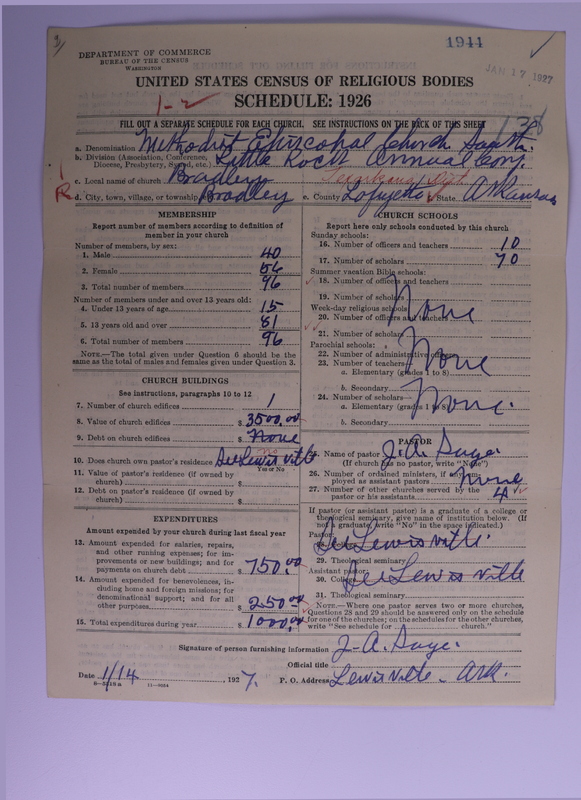 1941
DEPARTMENT OF COMMERCE
BUREAU OF THE CENSUS
WASHINGTON
JAN 17 1927
UNITED STATES CENSUS OF RELIGIOUS BODIES
SCHEDULE: 1926
1-2
FILL OUT A SEPARATE SCHEDULE FOR EACH CHURCH. SEE INSTRUCTIONS ON THE BACK OF THIS SHEET
138
a. Denomination Methodist Episcopal Church South.
b. Division (Association, Conference, Diocese, Presbytery, Synod, etc.) Little Rock Annual Conf.
c. Local name of church Bradley Texarkana Dist
R
d. City, town, village, or township Bradley e. County Lafayette State Arkansas
MEMBERSHIP
Report number of members according to definition of member in your church
Number of members, by sex:
1. Male 40
2. Female 56
3. Total number of members 96
Number of members under and over 13 years old:
4. Under 13 years of age 15
5. 13 years old and over 81
6. Total number of members 96
NOTE.—The total given under Question 6 should be the same as the total of males and females given under Question 3.
CHURCH BUILDINGS
See instructions, paragraphs 10 to 12
7. Number of church edifices 1
8. Value of church edifices $ 3500.00
9. Debt on church edifices $ None
10. Does church own pastor's residence no See Lewisville
Yes or No
11. Value of pastor's residence (if owned by church) $
12. Debt on pastor's residence (if owned by church) $
EXPENDITURES
Amount expended by your church during last fiscal year
13. Amount expended for salaries, repairs, and other running expenses; for improvements or new buildings; and for payments on church debt $ 750.00
14. Amount expended for benevolences, including home and foreign missions; for denominational support; and for all other purposes $ 250.00
15. Total expenditures during year $ 1000.00
CHURCH SCHOOLS
Report here only schools conducted by this church
Sunday schools:
16. Number of officers and teachers 10
17. Number of scholars 70
Summer vacation Bible schools:
18. Number of officers and teachers
19. Number of scholars None
Week-day religious schools:
20. Number of officers and teachers
21. Number of scholars
Parochial schools:
22. Number of administrative officers
23. Number of teachers— None
a. Elementary (grades 1 to 8)
b. Secondary
24. Number of scholars— None.
a. Elementary (grades 1 to 8)
b. Secondary
PASTOR
25. Name of pastor J. A. Sage.
(If church has no pastor, write "No")
26. Number of ordained ministers, if any, employed as assistant pastors None
27. Number of other churches served by the pastor or his assistants 4
If pastor (or assistant pastor) is a graduate of a college or theological seminary, give name of institution below. (If not a graduate, write "No" in the space indicated.)
Pastor:
28. College See Lewisville.
29. Theological seminary
Assistant pastor:
30. College See Lewisville
31. Theological seminary
NOTE.—Where one pastor serves two or more churches, Questions 28 and 29 should be answered only on the schedule for one of the churches; on the schedules for the other churches, write "See schedule for church."
Signature of person furnishing information J-A. Sage.
Official title
Date 1/14, 1927. P. O. Address Lewisville - Ark.
11-9054